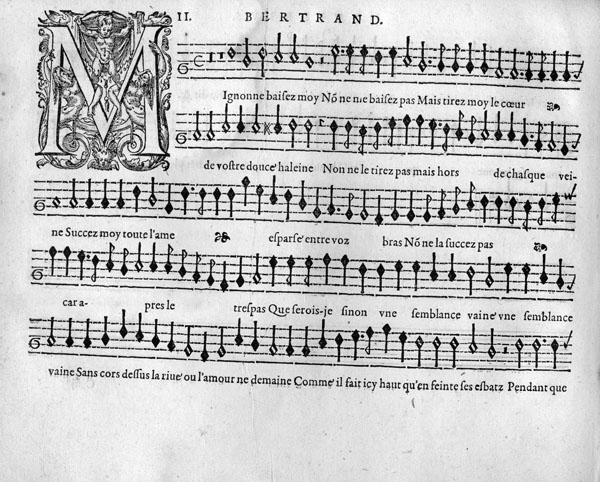 II. BERTRAND.
MIgnonne baisez moy Nõ ne me baisez pas Mais tirez moy le cœur
de vostre douce haleine Non ne le tirez pas mais hors de chasque vei-
ne Succez moy toute l'ame esparse entre voz bras Nõ ne la succez pas
car a- pres le trespas Que serois-je sinon vne semblance vaine vne semblance
vaine Sans cors dessus la riue ou l'amour ne demaine Comme il fait icy haut qu'en feinte ses esbatz Pendant que